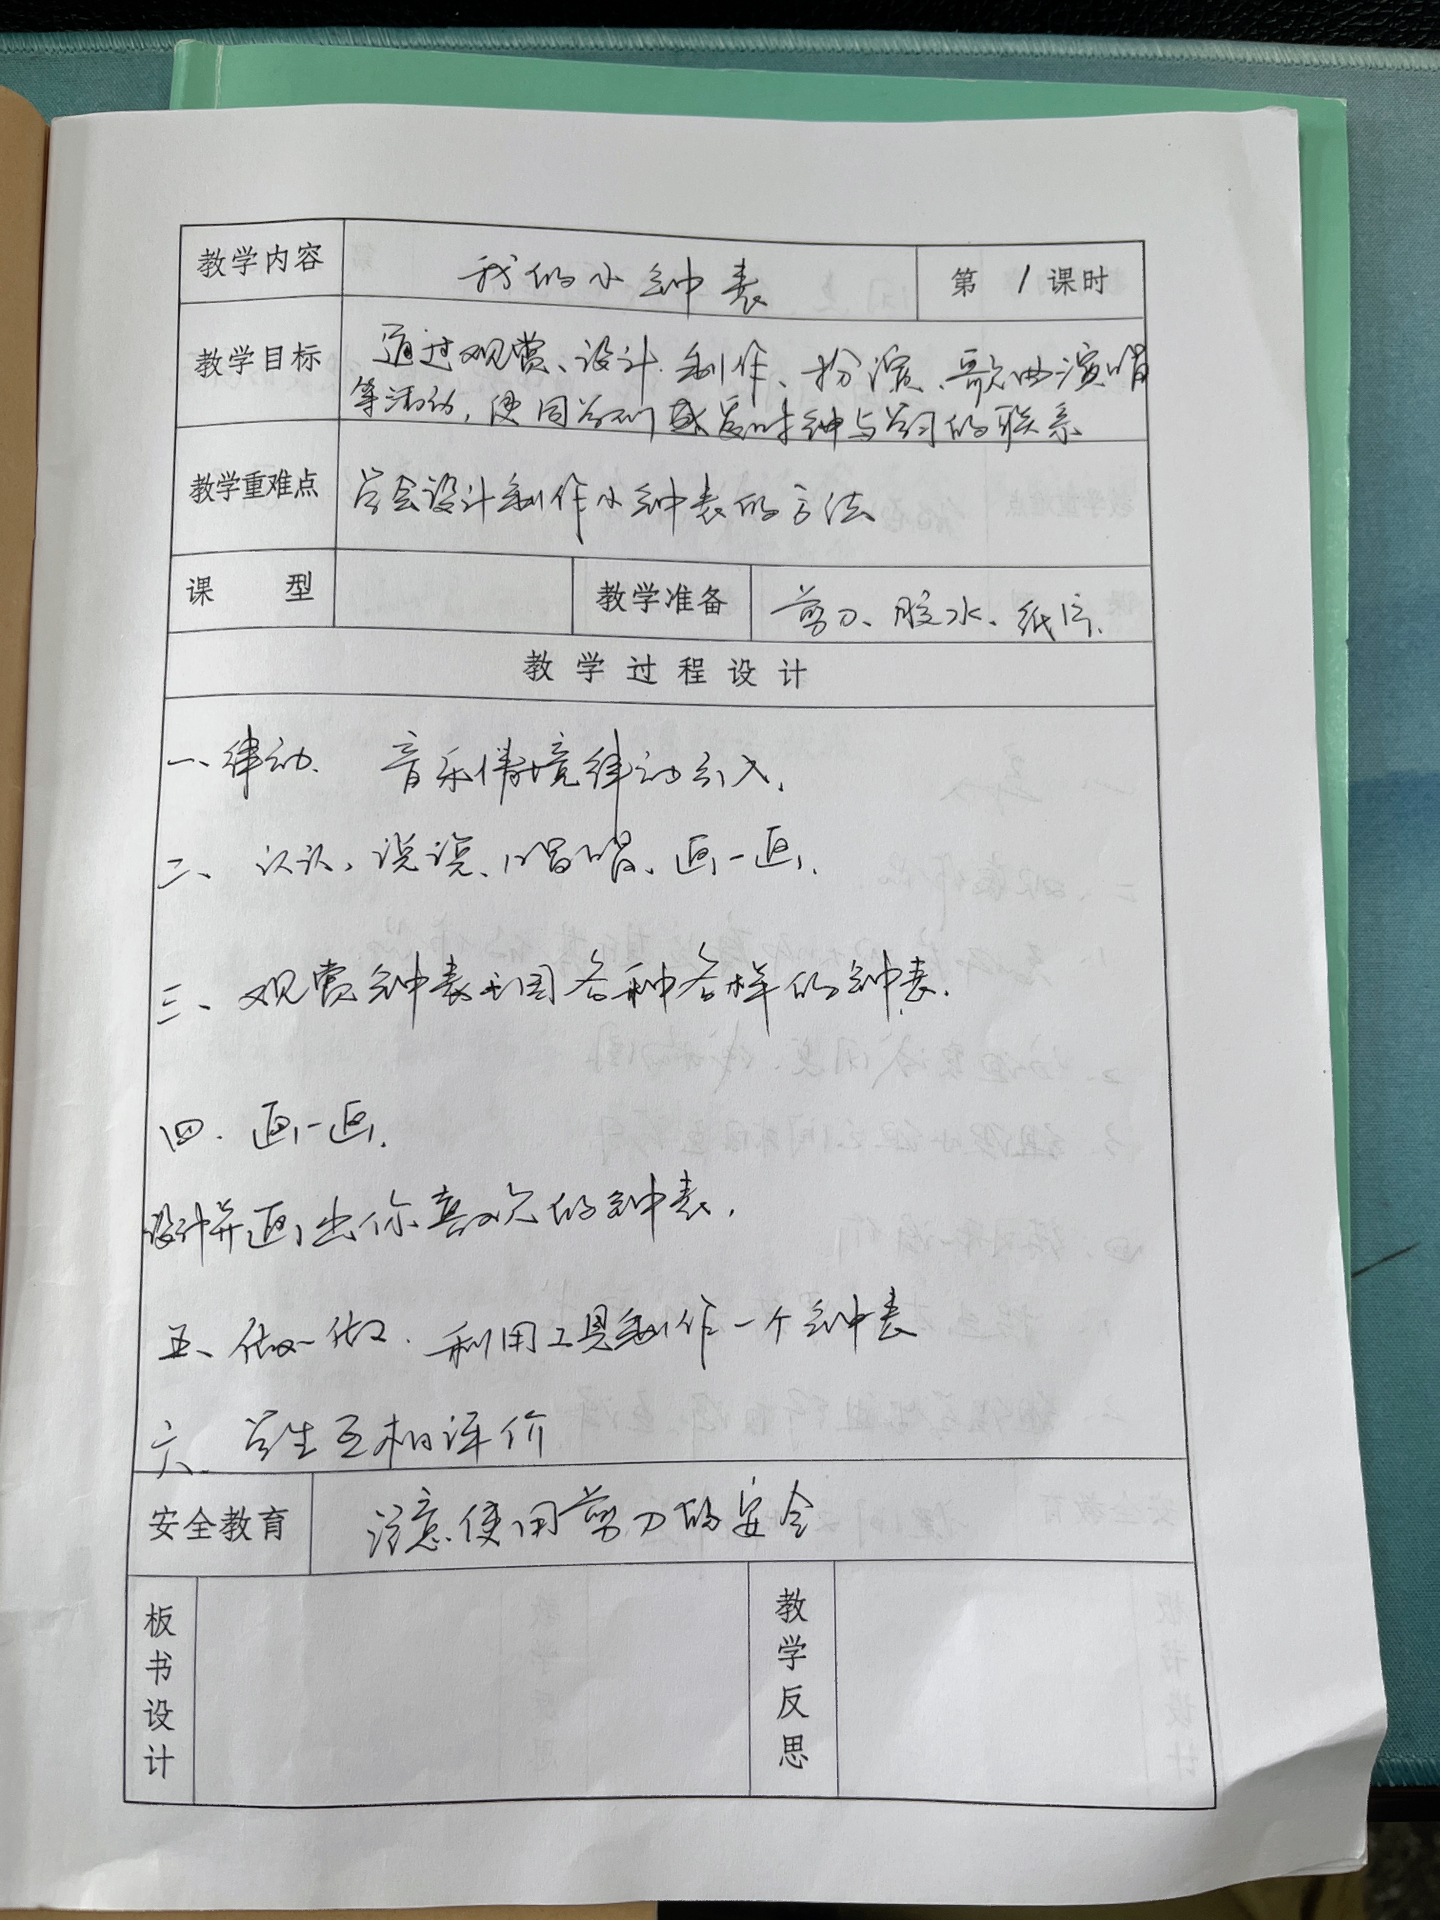 教学内容 我的小钟表 第 1 课时
教学目标 通过观赏、设计、制作、扮演、歌曲演唱
等活动,使同学们感受时钟与学习的联系
教学重难点 学会设计制作小钟表的方法
课 型 教学准备 剪刀、胶水、纸片、
教学过程设计
一、律动、 音乐情境律动引入、
二、认认、说说、唱唱、画一画、
三、观赏钟表 各种各样的钟表、
四、画一画、
设计并画出你喜欢的钟表、
五、做一做、利用工具制作一个钟表
六、学生互相评价
安全教育 注意使用剪刀的安全
板书设计 教学反思